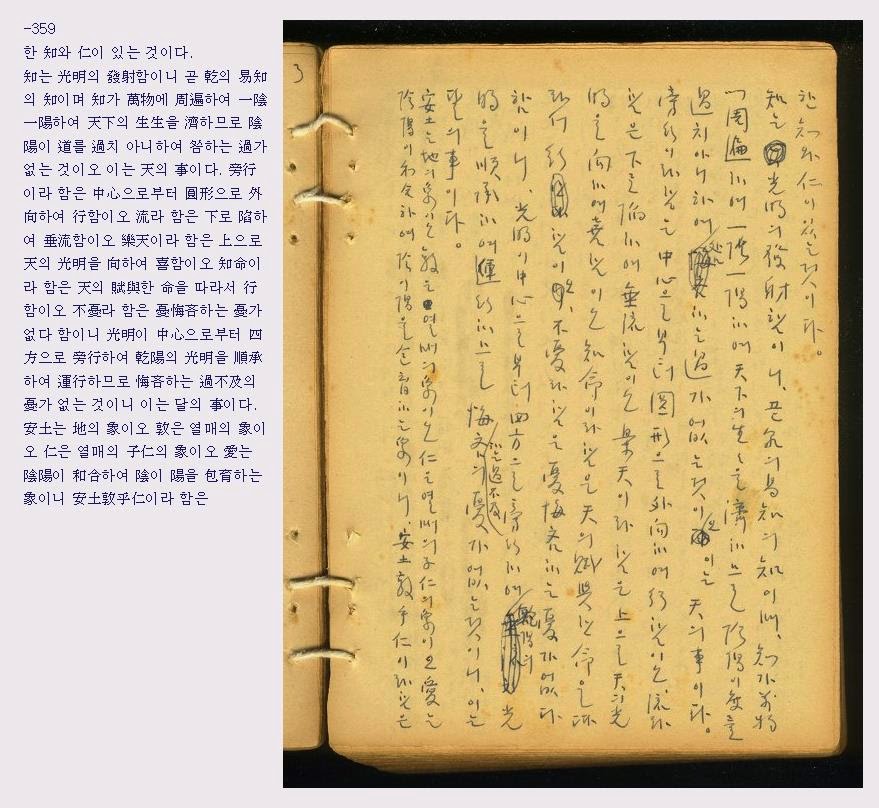 -359
한 知와 仁이 있는 것이다.
知는 光明의 發射함이니 곧 乾의 易知
의 知이며 知가 萬物에 周遍하여 一陰
一陽하여 天下의 生生을 濟하므로 陰
陽이 道를 過치 아니하여 咎하는 過가
없는 것이오 이는 天의 事이다. 旁行
이라 함은 中心으로부터 圓形으로 外
向하여 行함이오 流라 함은 下로 陷하
여 垂流함이오 樂天이라 함은 上으로
天의 光明을 向하여 喜함이오 知命이
라 함은 天의 賦與한 命을 따라서 行
함이오 不憂라 함은 憂悔吝하는 憂가
없다 함이니 光明이 中心으로부터 四
方으로 旁行하여 乾陽의 光明을 順承
하여 運行하므로 悔吝하는 過不及의
憂가 없는 것이니 이는 달의 事이다.
安土는 地의 象이오 敦은 열매의 象이
오 仁은 열매의 子仁의 象이오 愛는
陰陽이 和合하여 陰이 陽을 包育하는
象이니 安土敦乎仁이라 함은
한 知와 仁이 있는 것이다.
知는 光明의 發射함이니, 곧 乾의 易知의 知이며, 知가 萬物
에 周遍하여 一陰一陽하여 天下의 生々을 濟하므로 陰陽이 道를
過치 아니하여 咎하는 過가 없는 것이오 이는 天의 事이다.
旁行이라 함은 中心으로부터 圓形으로 外向하여 行함이오, 流라
함은 下로 陷하여 垂流함이오 樂天이라 함은 上으로 天의 光
明을 向하여 喜함이오 知命이라 함은 天의 賦與한 命을 따
라서 行함이오, 不憂라 함은 憂悔吝하는 憂가 없다
함이니, 光明이 中心으로부터 四方으로 旁行하여 乾陽의 光
明을 順承하여 運行하므로 悔吝하는 過不及의 憂가 없는 것이니, 이는
달의 事이다.
安土는 地의 象이오 敦은 열매의 象이오 仁은 열매의 子仁의 象이오 愛는
陰陽이 和合하여 陰이 陽을 包育하는 象이니, 安土敦乎仁이라 함은